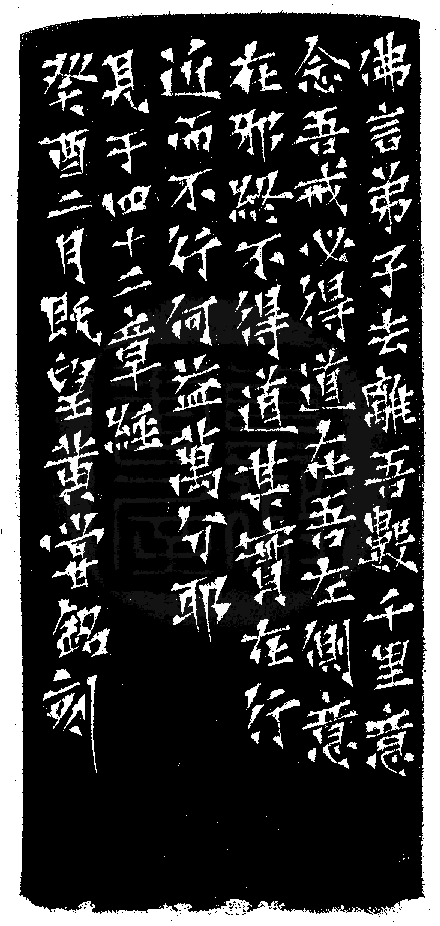 佛言弟子去離吾數千里意
念吾戒必得道在吾左側意
在邪終不得道其實在行
近而不行何益萬分耶
見于四十二章經
癸酉二月既望黃甞銘刻